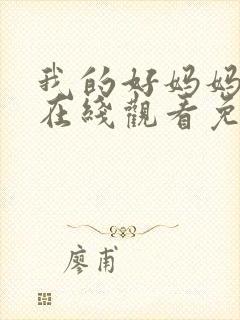 我的好妈妈
在线觀看免
廖甫